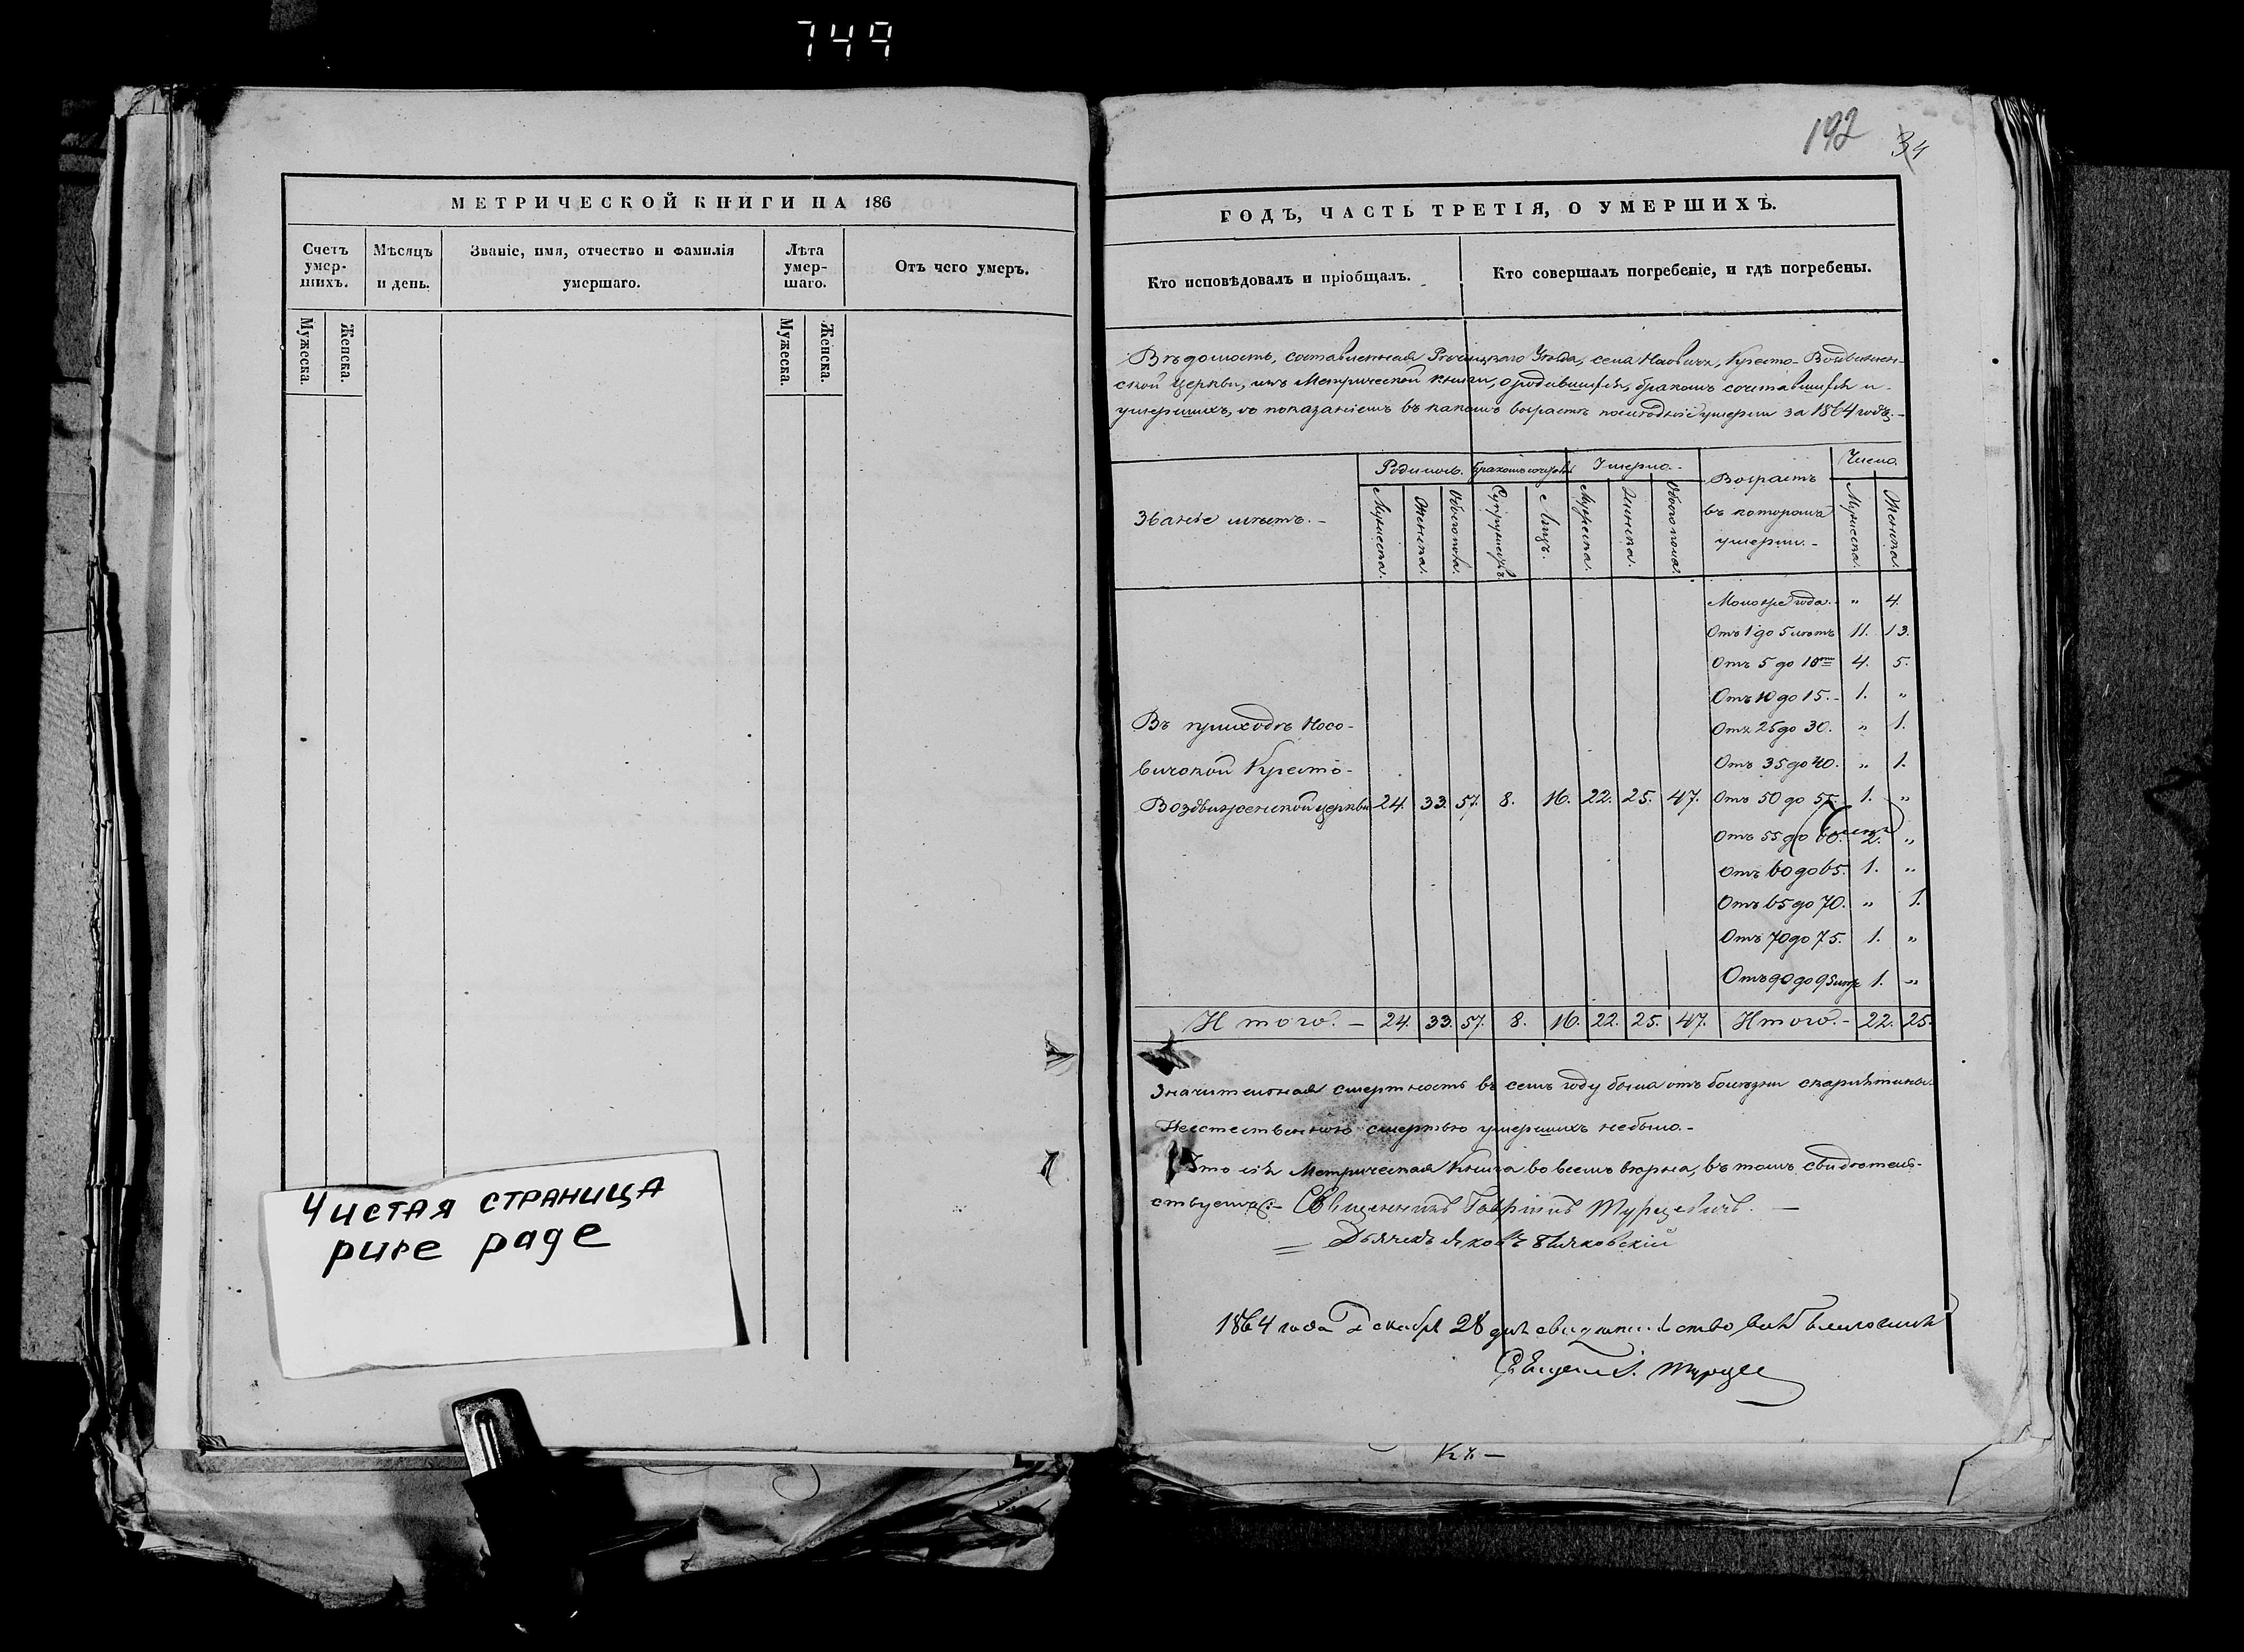 749
192 34
МЕТРИЧЕСКОЙ КНИГИ НА 186
Счетъ умер-шихъ.
Мѣсяцъ и день.
Званіе, имя, отчество и фамилія умершаго.
Лѣта умер-шаго.
Отъ чего умеръ.
Мужеска.
Женска.
Мужеска.
Женска.
Чистая страница
pure page
ГОДЪ, ЧАСТЬ ТРЕТІЯ, О УМЕРШИХЪ.
Кто исповѣдовалъ и пріобщалъ.
Кто совершалъ погребеніе, и гдѣ погребены.
Вѣдомость, составленная Уѣзда, села Кресто-Воздвижен-
ской церкви, изъ Метрической книги, о родившихся, бракомъ сочетавшихся и
умершихъ, съ показаніемъ въ какомъ возрастѣ умерли за 1864 годъ.
Званіе мѣстъ.
Родилось.
Бракомъ
Умерло.
Возрастъ въ которомъ умерли.
Число.
Мужеска.
Женска.
Обоего пола.
Супружествъ
Лицъ.
Мужеска.
Женска.
Обоего пола.
Мужеска.
Женска.
Моложе года. " 4.
Отъ 1 до 5 лѣтъ 11. 13.
Отъ 5 до 10 4. 5.
Отъ 10 до 15. 1. "
Отъ 25 до 30. " 1.
Отъ 35 до 40. " 1.
Въ приходѣ Носо-
вичской Кресто-
Воздвиженской церкви 24. 33. 57. 8. 16. 22. 25. 47. Отъ 50 до 55. 1. "
Отъ 55 до 60. 2. "
Отъ 60 до 65. 1. "
Отъ 65 до 70. " 1.
Отъ 70 до 75. 1. "
Отъ 90 до 95 1. "
Итого. 24. 33. 57. 8. 16. 22. 25. 47. Итого. 22. 25.
Значительная смертность въ семъ году была отъ болѣзни скарлятины.
Неестественною смертью умершихъ небыло.
Что сія Метрическая Книга во всемъ вѣрна, въ томъ свидѣтель-
ствуемъ: Священникъ Гавріилъ Турцевичъ.
Дьячекъ Яковъ
1864 года Декабря 28 дня
Къ